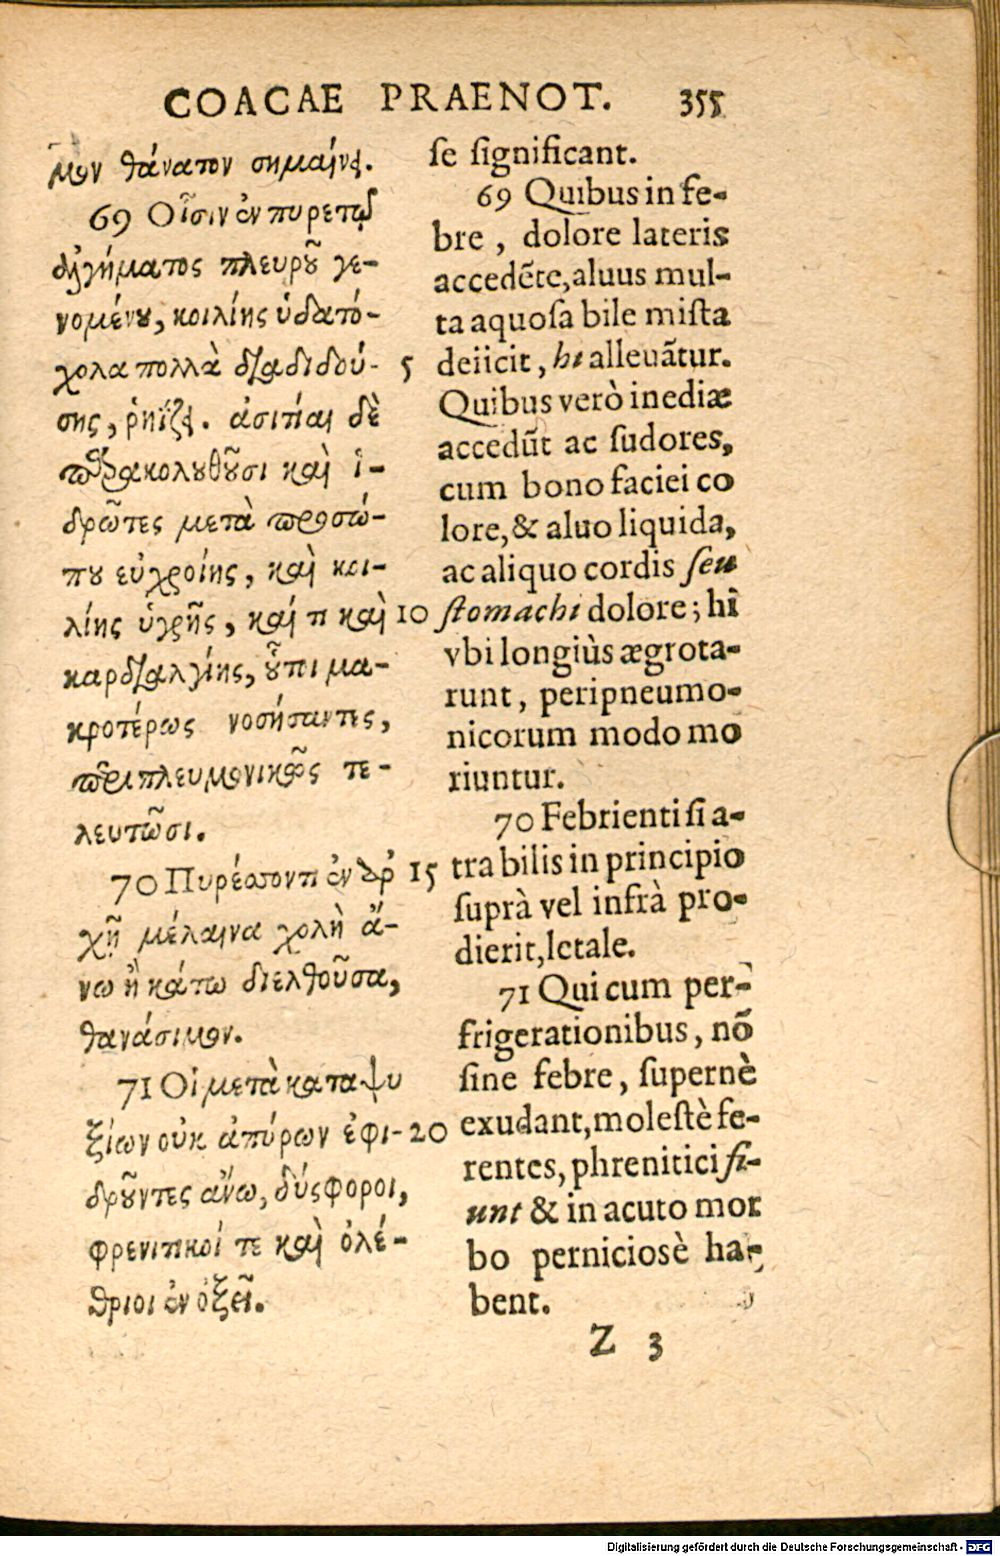 COACAE PRAENOT. 355
μον θάνατον σημαίνει.
69 Οἷσιν ἐν πυρετῷ
ἀλγήματος πλευροῦ γε-
νομένου, κοιλίης ὑδατό-
χολα πολλὰ διαδιδού-
σης, ῥηΐζει. ἀσιτίαι δὲ
παρακολουθοῦσι καὶ ἱ-
δρῶτες μετὰ προσώ-
που εὐχροίης, καὶ κοι-
λίης ὑγρῆς, καί τι καὶ
καρδιαλγίης, οὗτοι μα-
κροτέρως νοσήσαντες,
περιπλευμονικῶς τε-
λευτῶσι.
70 Πυρέσσοντι ἐν ἀρ
χῇ μέλαινα χολὴ ἄ-
νω ἢ κάτω διελθοῦσα,
θανάσιμον.
71 Οἱ μετὰ καταψυ
ξίων οὐκ ἀπύρων ἐφι-
δροῦντες ἄνω, δύσφοροι,
φρενιτικοί τε καὶ ὀλέ-
θριοι ἐν ὀξεῖ.
5
10
15
20
se significant.
69 Quibus in fe-
bre, dolore lateris
accedẽte, aluus mul-
ta aquosa bile mista
deiicit, hi alleuãtur.
Quibus verò inediæ
accedũt ac sudores,
cum bono faciei co
lore, & aluo liquida,
ac aliquo cordis seu
stomachi dolore; hi
vbi longiùs ægrota-
runt, peripneumo-
nicorum modo mo
riuntur.
70 Febrienti si a-
tra bilis in principio
suprà vel infrà pro-
dierit, letale.
71 Qui cum per-
frigerationibus, nõ
sine febre, supernè
exudant, molestè fe-
rentes, phrenitici fi-
unt & in acuto mor
bo perniciosè ha-
bent.
Z 3
Digitalisierung gefördert durch die Deutsche Forschungsgemeinschaft - DFG